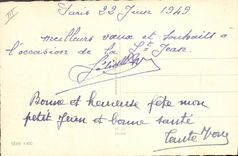 III
Paris 22 Juin 1949
meilleurs vœux et souhaits à
l'occasion de la St Jean.
Bonne et heureuse fête mon
petit Jean et bonne santé
Tante